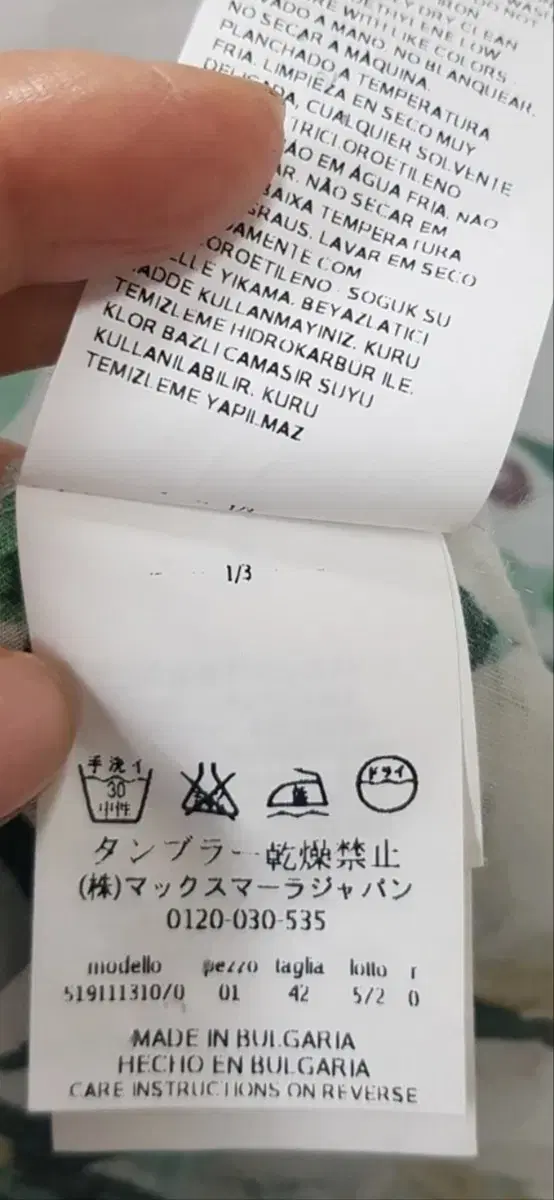 DRY CLEAN
ETHYLENE LOW
WITH LIKE COLORS
ADO A MANO. NO BLANQUEAR.
NO SECAR A MÁQUINA.
PLANCHADO A TEMPERATURA
FRIA. LIMPIEZA EN SECO MUY
CUALQUIER SOLVENTE
TRICLOROETILENO
ÃO EM ÁGUA FRIA. NÃO
AR. NÃO SECAR EM
BAIXA TEMPERATURA
GRAUS. LAVAR EM SECO
DAMENTE COM
OROETILENO. SOGUK SU
ELLE YIKAMA. BEYAZLATICI
ADDE KULLANMAYINIZ. KURU
TEMIZLEME HIDROKARBUR ILE.
KLOR BAZLI CAMASIR SUYU
KULLANILABILIR. KURU
TEMIZLEME YAPILMAZ
1/3
手洗イ
30
中性
低
ドライ
タンブラー乾燥禁止
(株)マックスマーラジャパン
0120-030-535
modello pezzo taglia lotto r
519111310/0 01 42 5/2 0
MADE IN BULGARIA
HECHO EN BULGARIA
CARE INSTRUCTIONS ON REVERSE